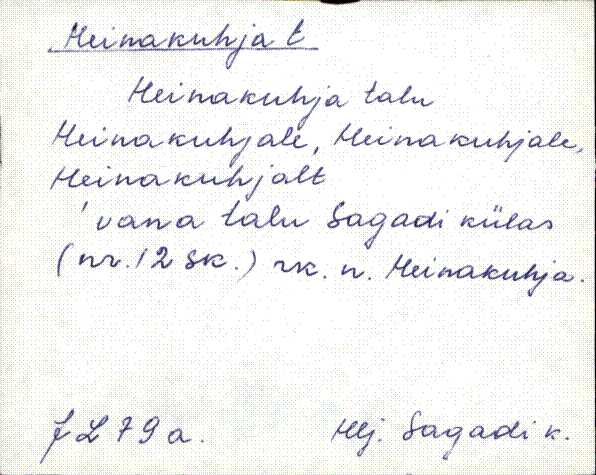 Heinakuhja t
Heinakuhja talu
Heinakuhjale, Heinakuhjale,
Heinakuhjalt
'vana talu Sagadi külas
(nr. 12 Sk.) rk. n. Heinakuhja.
79 a. Hlj. Sagadi k.